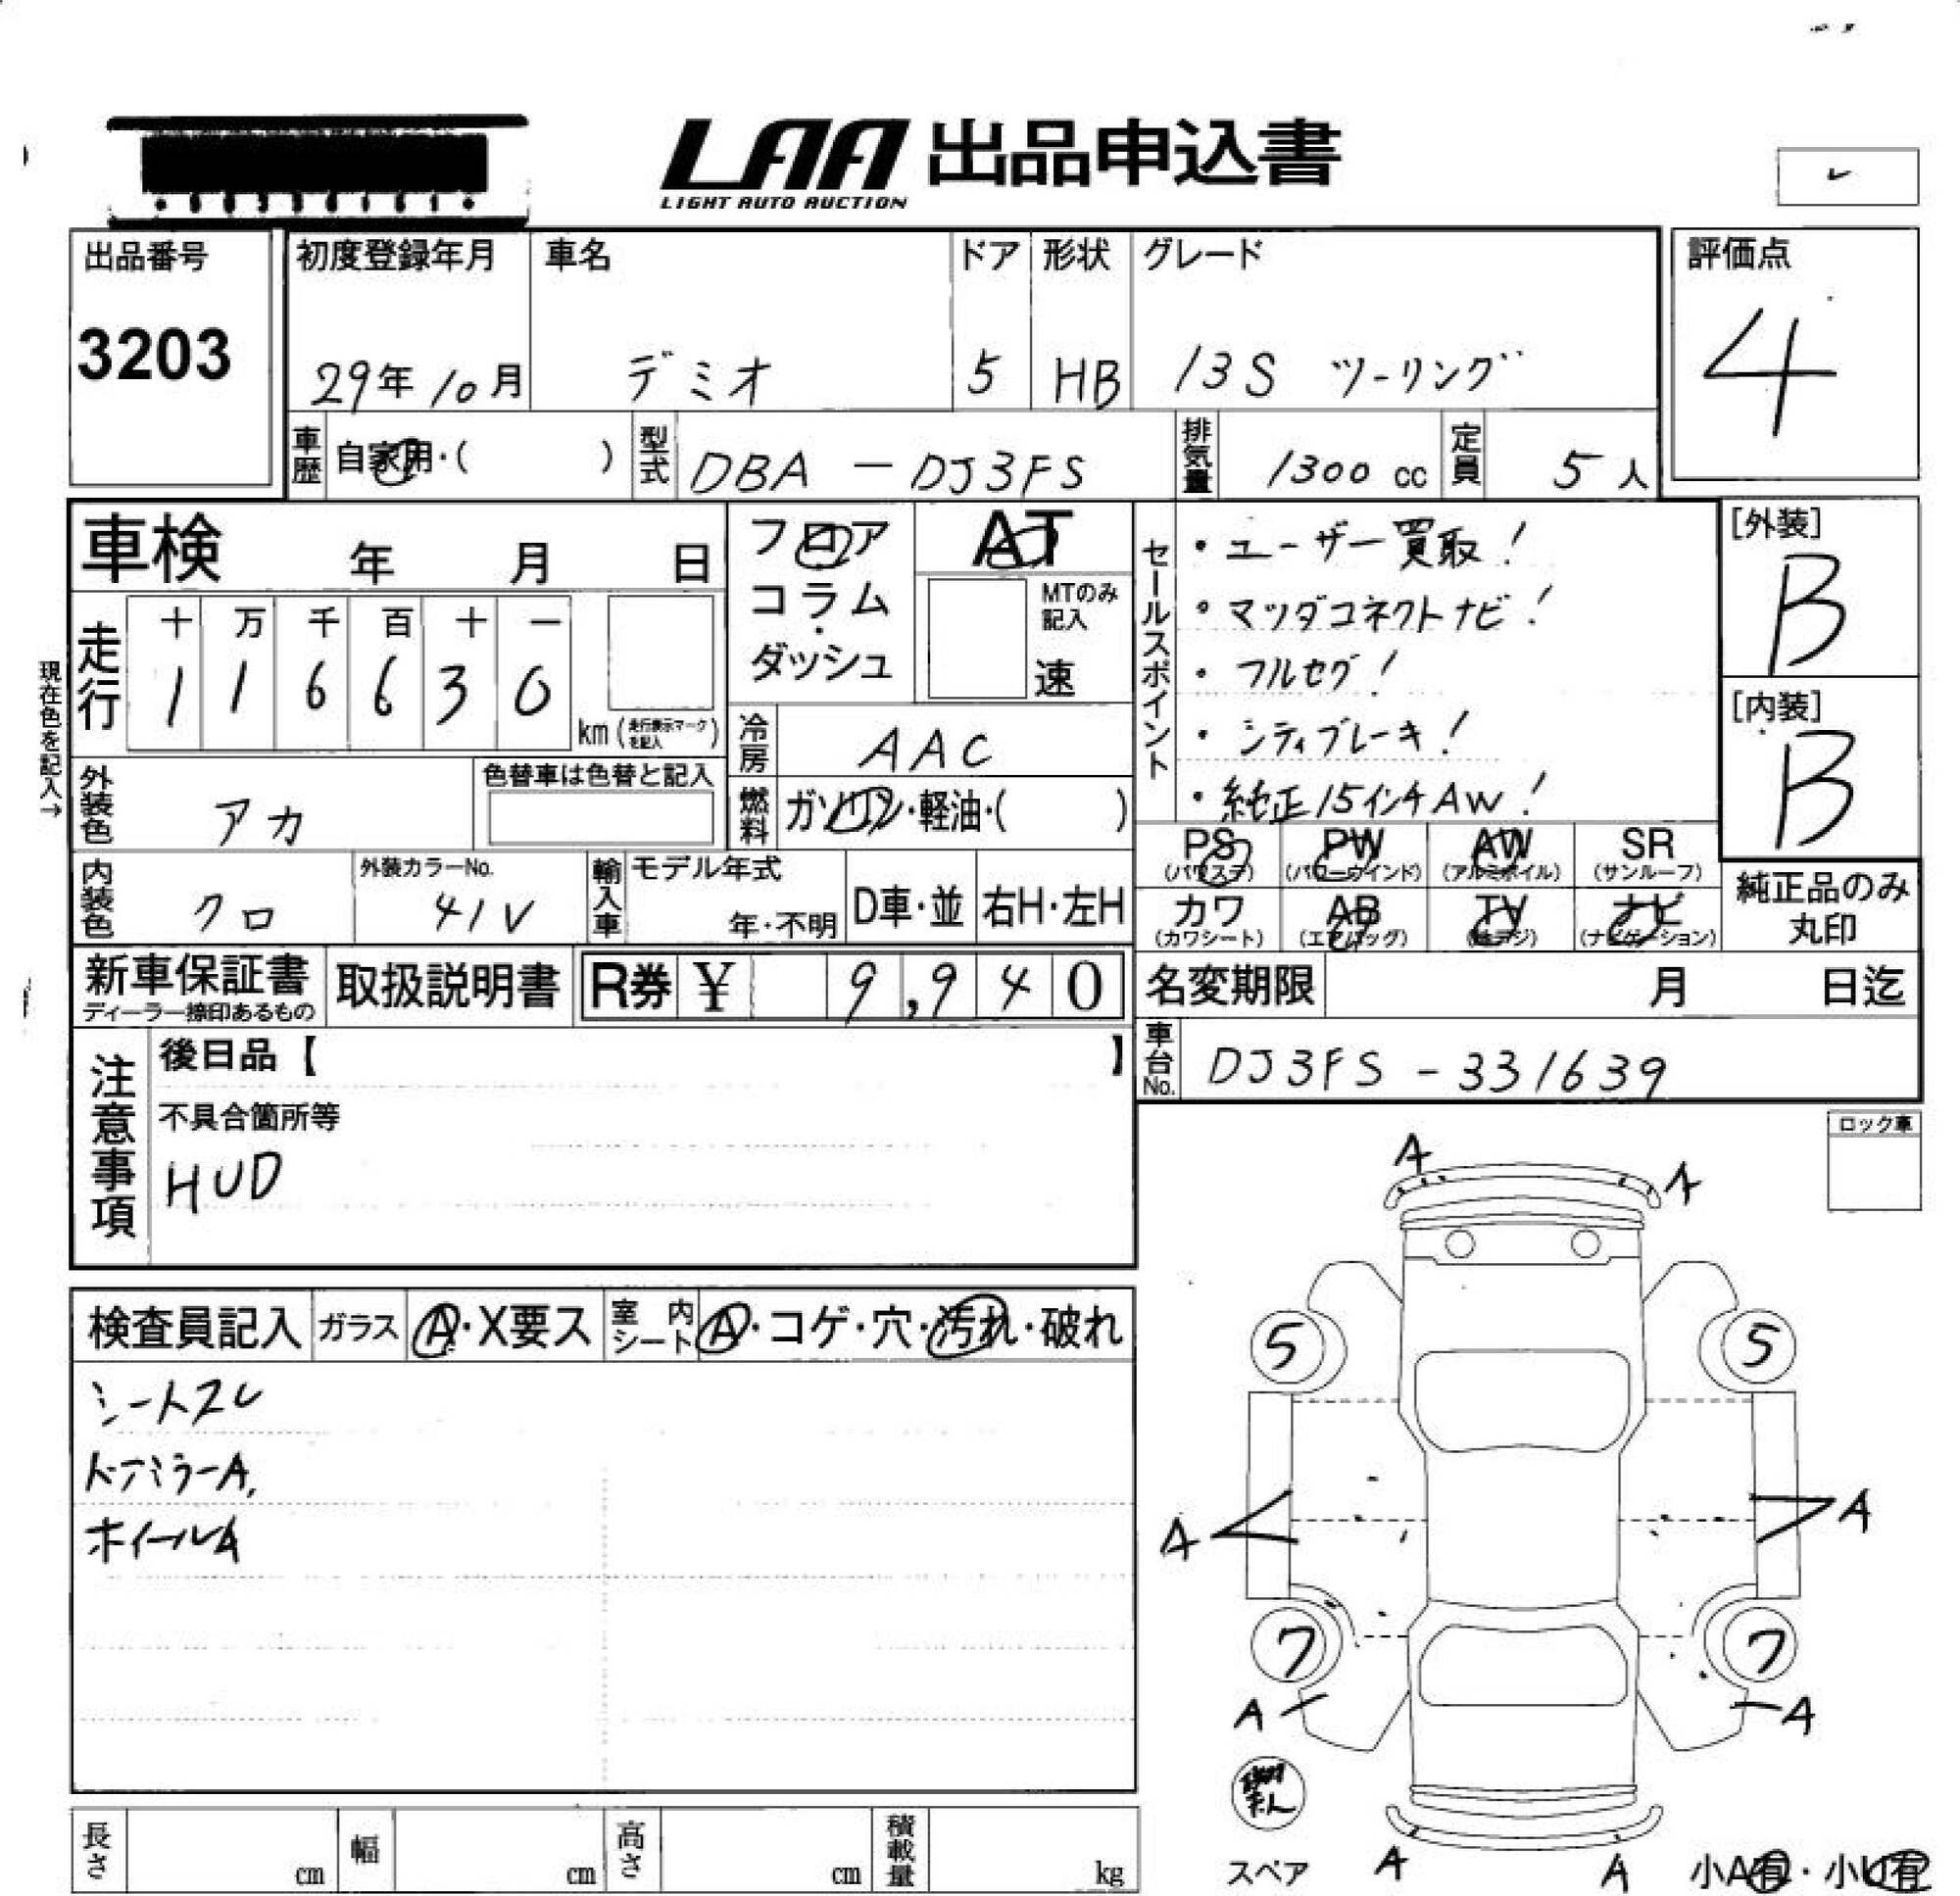 LAA 出品申込書
LIGHT AUTO AUCTION
出品番号
3203
初度登録年月
29年10月
車名
デミオ
ドア
5
形状
HB
グレード
13S ツーリング
評価点
4
車歴 自家用・( )
型式 DBA - DJ3FS
排気量 1300 cc
定員 5人
車検 年 月 日
フロア
コラム
・
ダッシュ
AT
MTのみ
記入
速
走行
十 万 千 百 十 一
1 1 6 6 3 0
km (走行表示マークを記入)
現在色を記入→
冷房 AAC
燃料 ガソリン・軽油・( )
外装色 アカ
色替車は色替と記入
内装色 クロ
外装カラーNo.
41V
輸入車
モデル年式
年・不明
D車・並
右H・左H
セールスポイント
・ユーザー買取!
・マツダコネクトナビ!
・フルセグ!
・シティブレーキ!
・純正15インチAW!
[外装]
B
[内装]
B
PS
(パワステ)
PW
(パワーウインド)
AW
(アルミホイル)
SR
(サンルーフ)
カワ
(カワシート)
AB
(エアバッグ)
TV
(地デジ)
ナビ
(ナビゲーション)
純正品のみ
丸印
新車保証書
ディーラー捺印あるもの
取扱説明書
R券 ¥ 9,940
名変期限 月 日迄
車台No. DJ3FS - 331639
注意事項
後日品【 】
不具合箇所等
HUD
ロック車
検査員記入
ガラス A・X要ス
室内シート A・コゲ・穴・汚れ・破れ
シートスレ
ドアミラーA.
ホイールA
A
A
5
5
A
A
7
7
A
A
スペア
A
A
小A有・小U有
長さ cm
幅 cm
高さ cm
積載量 kg